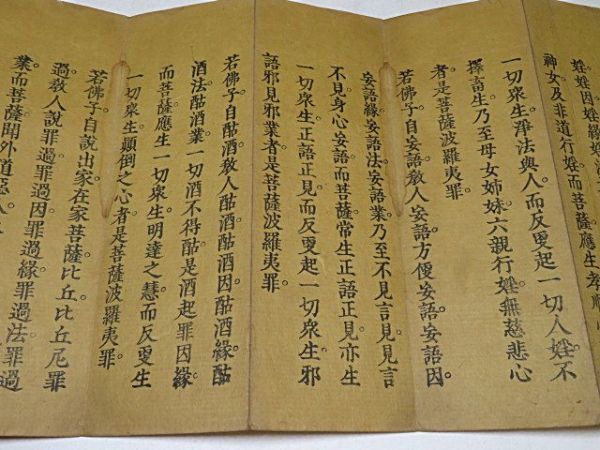 婬婬因婬緣婬法
神女及非道行婬而菩薩應生孝順心
一切衆生淨法與人而反更起一切人婬不
擇畜生乃至母女姉妹六親行婬無慈悲心
者是菩薩波羅夷罪。
若佛子自妄語教人妄語方便妄語妄語因。
妄語緣妄語法妄語業乃至不見言見見言
不見身心妄語而菩薩常生正語正見亦生
一切衆生正語正見而反更起一切衆生邪
語邪見邪業者是菩薩波羅夷罪。
若佛子自酤酒教人酤酒酤酒因酤酒緣酤
酒法酤酒業一切酒不得酤是酒起罪因緣
而菩薩應生一切衆生明達之慧而反更生
一切衆生顛倒之心者是菩薩波羅夷罪。
若佛子自說出家在家菩薩比丘比丘尼罪
過教人說罪過罪過因罪過緣罪過法罪過
業而菩薩聞外道惡人